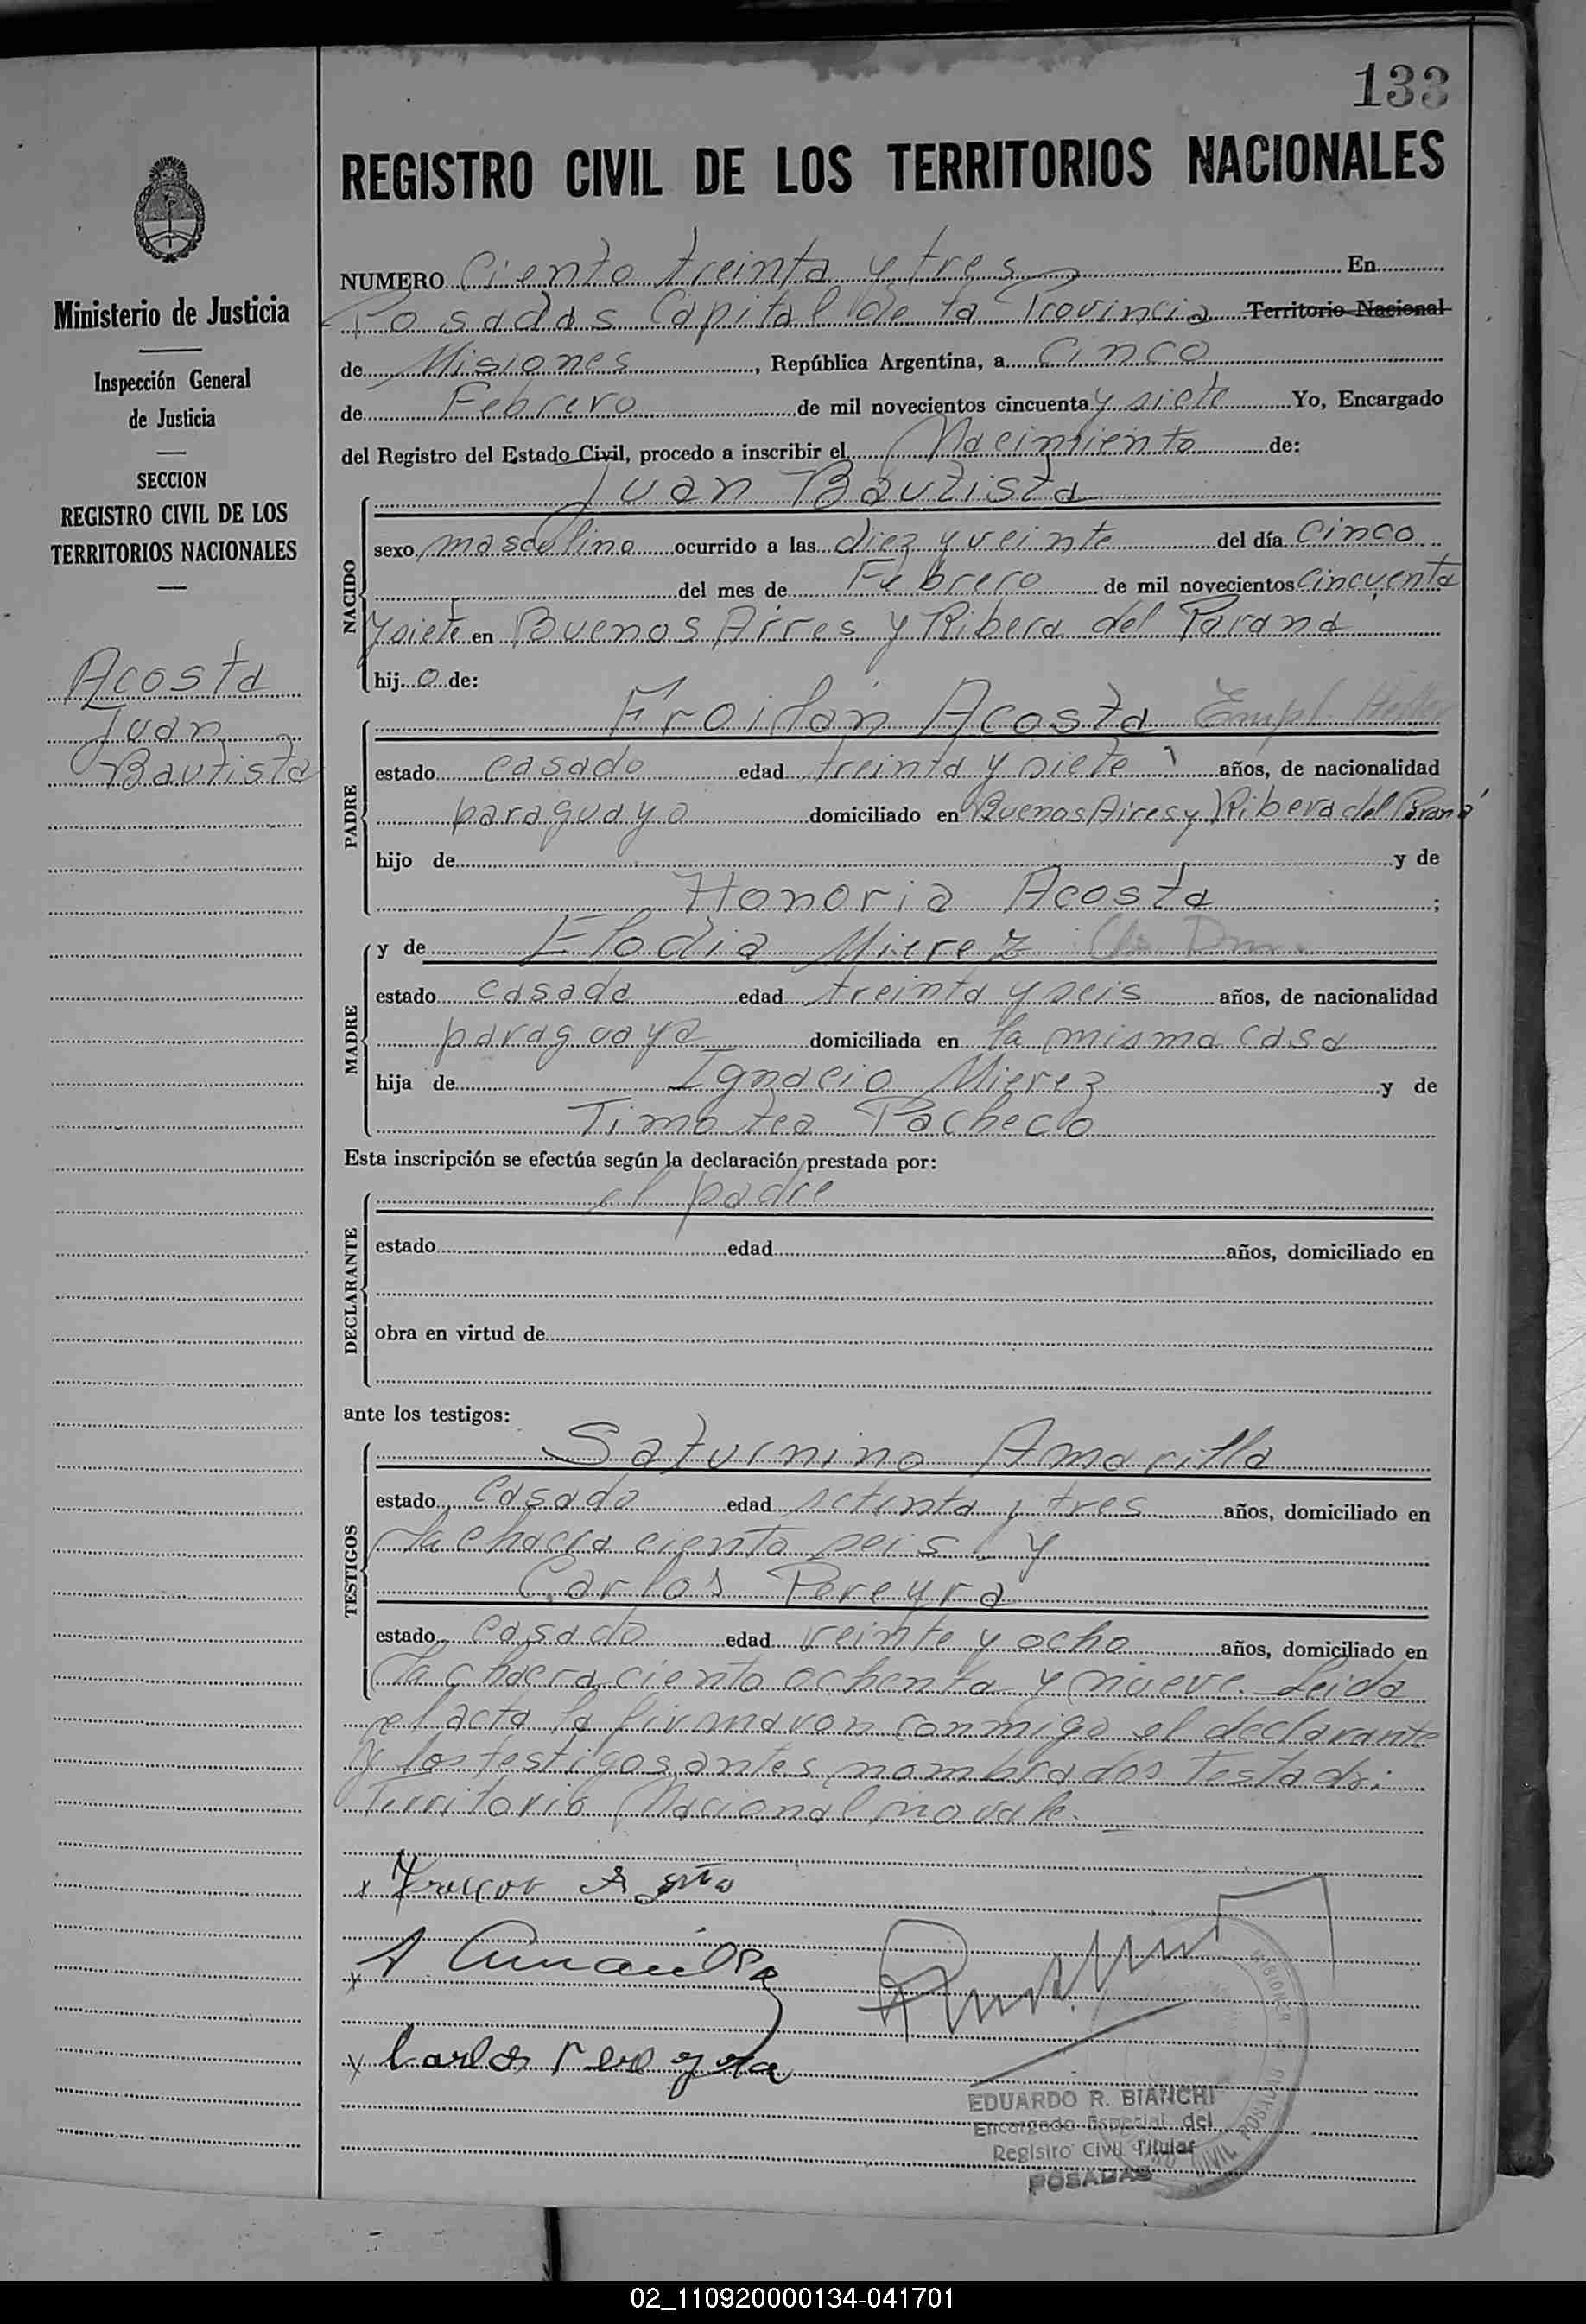 133
REGISTRO CIVIL DE LOS TERRITORIOS NACIONALES
Ministerio de Justicia
Inspección General
de Justicia
SECCION
REGISTRO CIVIL DE LOS
TERRITORIOS NACIONALES
Acosta
Juan
Bautista
NUMERO Ciento treinta y tres En
Posadas Capital de la Provincia Territorio Nacional
de Misiones, República Argentina, a Cinco
de Febrero de mil novecientos cincuenta y siete Yo, Encargado
del Registro del Estado Civil, procedo a inscribir el Nacimiento de:
NACIDO
Juan Bautista
sexo masculino ocurrido a las diez y veinte del día Cinco
del mes de Febrero de mil novecientos Cincuenta
y siete en Buenos Aires y Ribera del Paraná
hijo de:
PADRE
Froilán Acosta Empl.
estado casado edad treinta y siete años, de nacionalidad
paraguaya domiciliado en Buenos Aires y Ribera del Paraná
hijo de y de
Honoria Acosta;
MADRE
y de Elodia Mierez
estado casada edad treinta y seis años, de nacionalidad
paraguaya domiciliada en la misma casa
hija de Ignacio Mierez y de
Timotea Pacheco
Esta inscripción se efectúa según la declaración prestada por:
DECLARANTE
el padre
estado edad años, domiciliado en
obra en virtud de
ante los testigos:
TESTIGOS
Saturnino Amarilla
estado casado edad setenta y tres años, domiciliado en
la chacra ciento seis y
Carlos Pereyra
estado casado edad veinte y ocho años, domiciliado en
la chacra ciento ochenta y nueve. Leida
el acta la firmaron conmigo el declarante
y los testigos antes nombrados Testado:
Territorio Nacional no vale.
x
x
x Carlos Pereyra
EDUARDO R. BIANCHI
Encargado Especial del
Registro Civil Titular
POSADAS
02_110920000134-041701